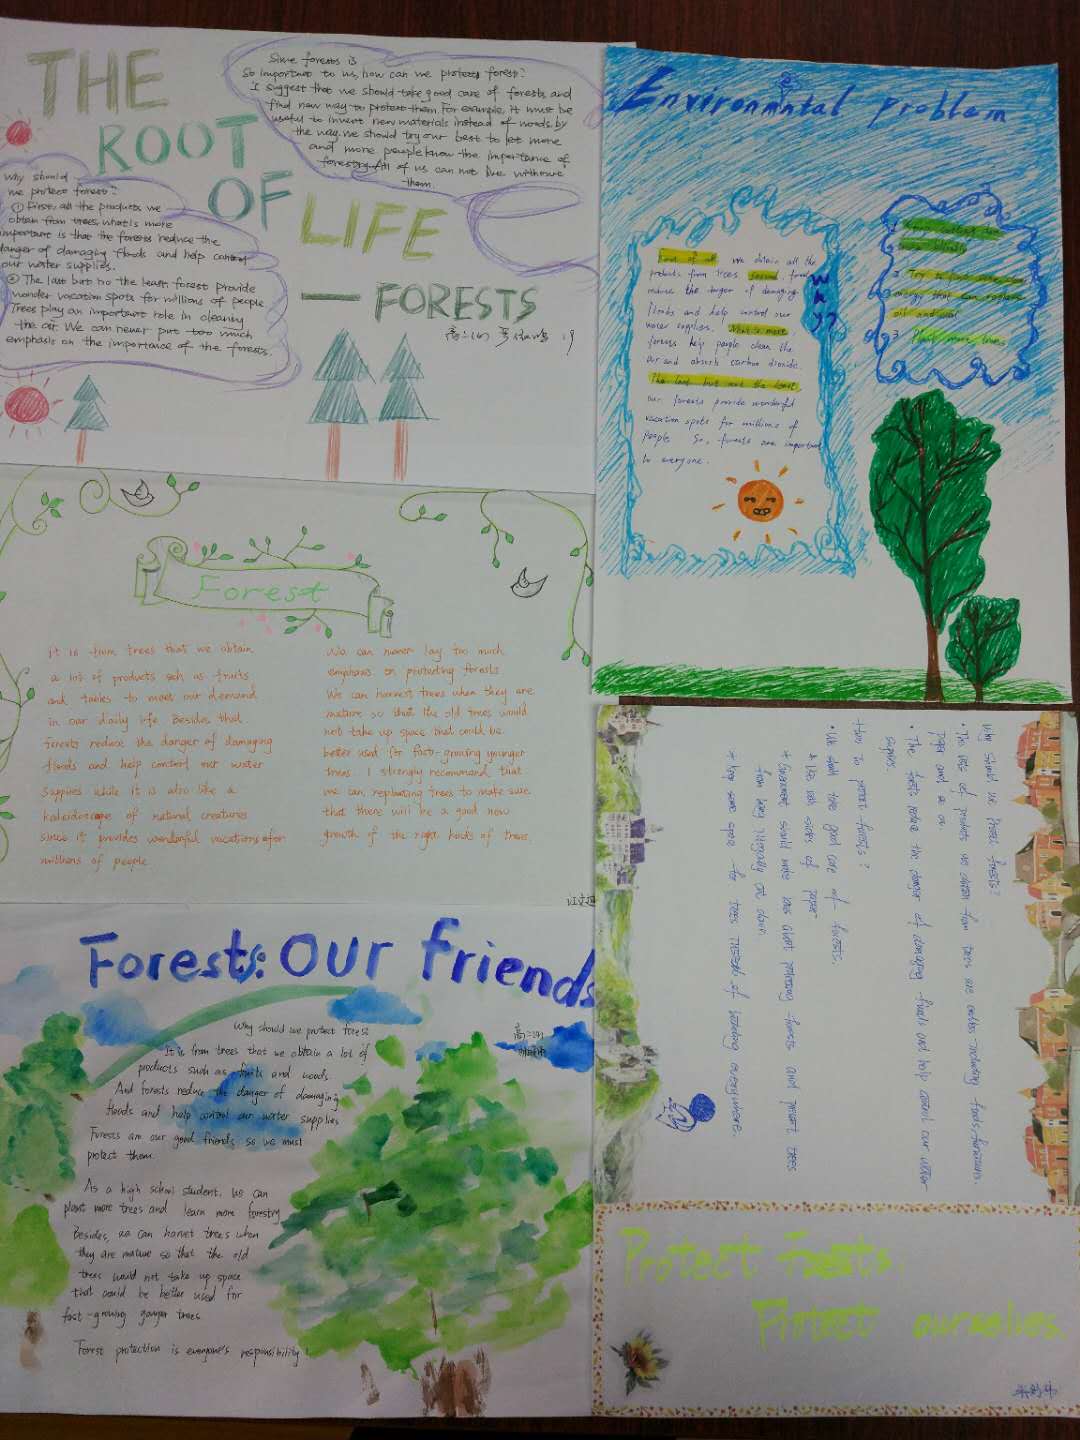 THE
ROOT
OF LIFE
— FORESTS
Since forests is
so important to us, how can we protect forest?
I suggest that we should take good care of forests and
find new way to protect them. For example, it must be
useful to invent new materials instead of woods. by
the way, we should try our best to let more
and more people know the importance of
forestry. All of us can not live without
them.
Why should
we protect forest?
① First, all the products we
obtain from trees, what is more
important is that the forests reduce the
danger of damaging floods and help control
our water supplies.
② The last but no the least forest provide
wonder vacation spots for millions of people
Trees play an important role in cleaning
the air. We can never put too much
emphasis on the importance of the forests.
Environmntal problem
First of all, we obtain all the
products from trees. second forest
reduce the danger of damaging
floods and help control our
water supplies. What's more
forests help people clean the
air and absorb carbon dioxide.
The last but not the least
our forests provide wonderful
vacation spots for millions of
people. So, forests are important
to everyone.
Why?
2 Try to find
energy that can replace
oil and coal
3 Plant more trees
Forest
it is from trees that we obtain
a lot of products such as fruits
and tables to meet our demand
in our daily life. Besides that
forests reduce the danger of damaging
floods and help control our water
supplies while it is also like a
kaleidoscope of natural creatures
since it provides wonderful vacations for
millions of people
We can never lay too much
emphasis on protecting forests
We can harvest trees when they are
mature so that the old trees would
not take up space that could be
better used for fast-growing younger
trees. I strongly recommend that
we can replanting trees to make sure
that there will be a good new
growth of the right kinds of trees.
Forests: Our friends
Why should we protect forest
It is from trees that we obtain a lot of
products such as fruits and woods.
And forests reduce the danger of damaging
floods and help control our water supplies
Forests are our good friends so we must
protect them.
As a high school student, we can
plant more trees and learn more forestry
Besides, we can harvest trees when
they are mature so that the old
trees would not take up space
that could be better used for
fast-growing younger trees.
Forest protection is everyone's responsibility!
Why should we protect forests?
• The lots of products we obtain from trees are endless including foods, furniture,
paper and so on
• The forests reduce the danger of damaging floods and help control our water
supplies.
How to protect forests?
• We should take good care of forests.
* Use both sides of paper
* Government should make laws about protecting forests and prevent trees
from being illegally cut down.
* Keep some space for trees instead of building everywhere.
Protect Forests.
Protect ourselves.